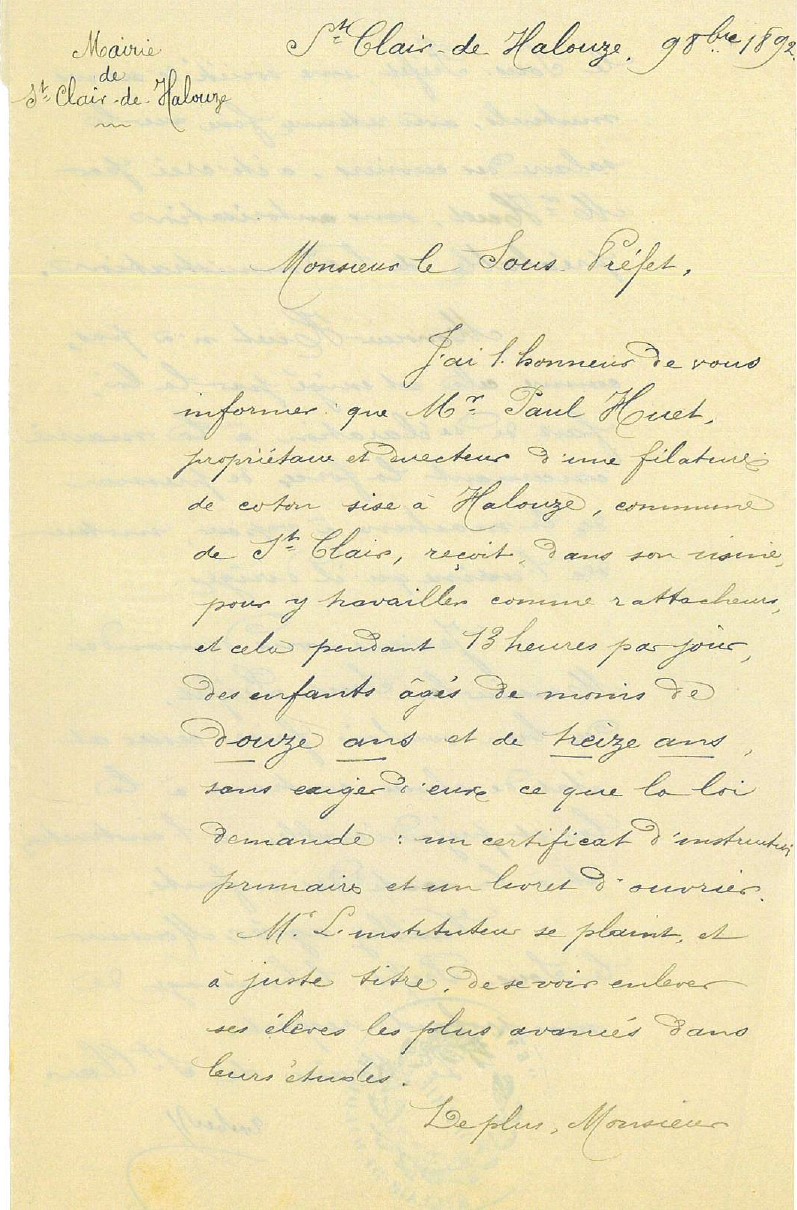 Mairie
de
St Clair-de-Halouze
St Clair-de-Halouze, 9 8bre 1892.
Monsieur le Sous-Préfet,
J'ai l'honneur de vous
informer que Mr Paul Huet,
propriétaire et directeur d'une filature
de coton sise à Halouze, commune
de St Clair, reçoit, dans son usine,
pour y travailler comme rattacheurs,
et cela pendant 13 heures par jour,
des enfants âgés de moins de
douze ans et de treize ans,
sans exiger d'eux ce que la loi
demande : un certificat d'instruction
primaire et un livret d'ouvrier.
Mr L'instituteur se plaint, et
à juste titre, de se voir enlever
ses élèves les plus avancés dans
leurs études.
De plus, Monsieur